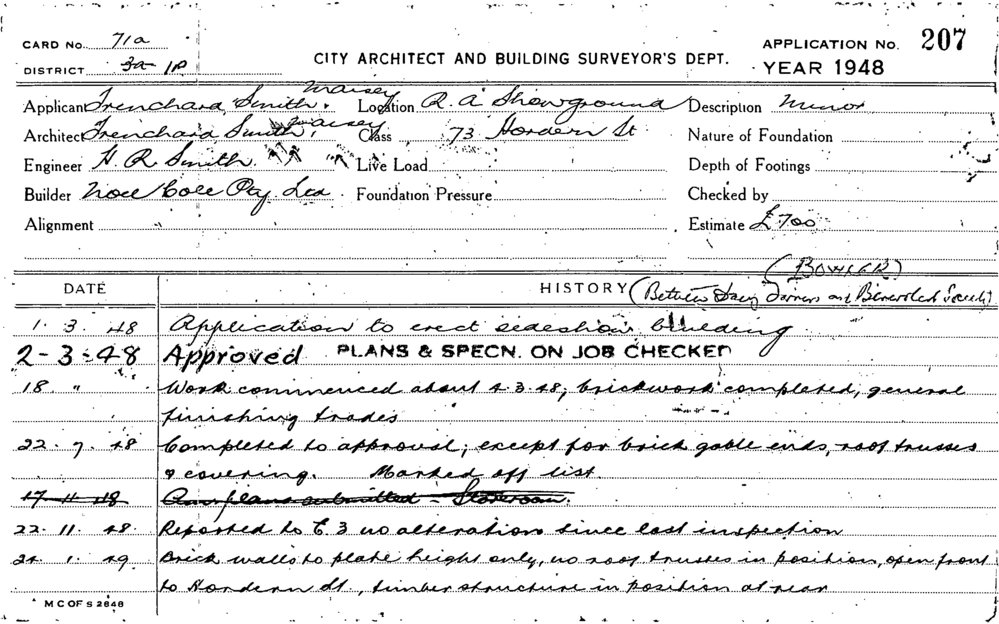 CARD No. 71a
CITY ARCHITECT AND BUILDING SURVEYOR'S DEPT.
APPLICATION No. 207
DISTRICT 3a 1P
YEAR 1948
Applicant Trenchard Smith, Maisey Location R. A. Showground Description Minor
Architect Trenchard Smith, Maisey Class 73 Hordern St Nature of Foundation
Engineer H. R. Smith Live Load Depth of Footings
Builder Noel Cole Pty Ltd Foundation Pressure Checked by
Alignment Estimate £700
(BOWSER)
DATE HISTORY (Between Dairy Farmers and Benevolent Society)
1. 3. 48 Application to erect sideshow building
2-3-48 Approved PLANS & SPECN. ON JOB CHECKED
18 " Work commenced about 4.3.48, brickwork completed, general
finishing trades
22. 7. 48 Completed to approval, except for brick gable ends, roof trusses
& covering. Marked off list.
17 11 48 plans submitted - Storeroom.
22. 11. 48. Reported to C.3 no alteration since last inspection
1. 49. Brick walls to plate height only, no roof trusses in position, open front
to Hordern St, timber structure in position at rear
M C OF S 2848